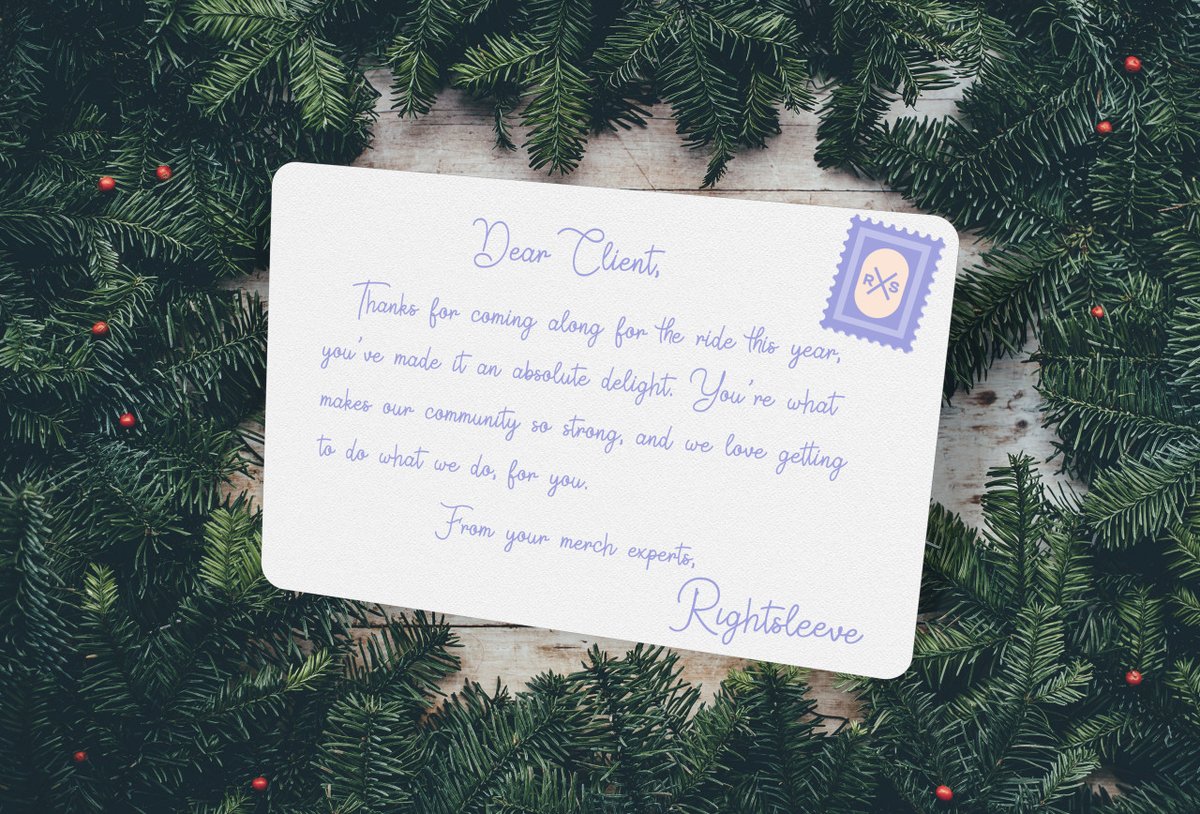 Dear Client,
Thanks for coming along for the ride this year,
you've made it an absolute delight. You're what
makes our community so strong, and we love getting
to do what we do, for you.
From your merch experts,
Rightsleeve
R X S